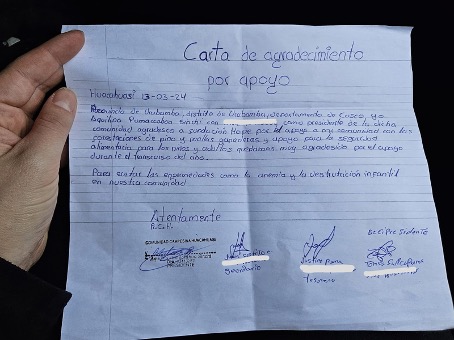 Carta de agradecimiento
por apoyo
Huacahuasi 13-03-24
Provincia de Urubamba, distrito de Urubamba, departamento de Cusco, yo
Pumacahua como presidente de la dicha
comunidad agradesco a fundación Hope por el apoyo a mi comunidad con las
forestaciones de pino y mallas ganaderas y apoyo para la seguridad
alimentaria para los niños y adultos quedamos muy agradecidos por el apoyo
durante el transcurso del año.
Para evitar las enfermedades como la anemia y la desnutrición infantil
en nuestra comunidad.
Atentamente
COMUNIDAD CAMPESINA HUACAHUASI
PRESIDENTE
Secretario
Tesorero